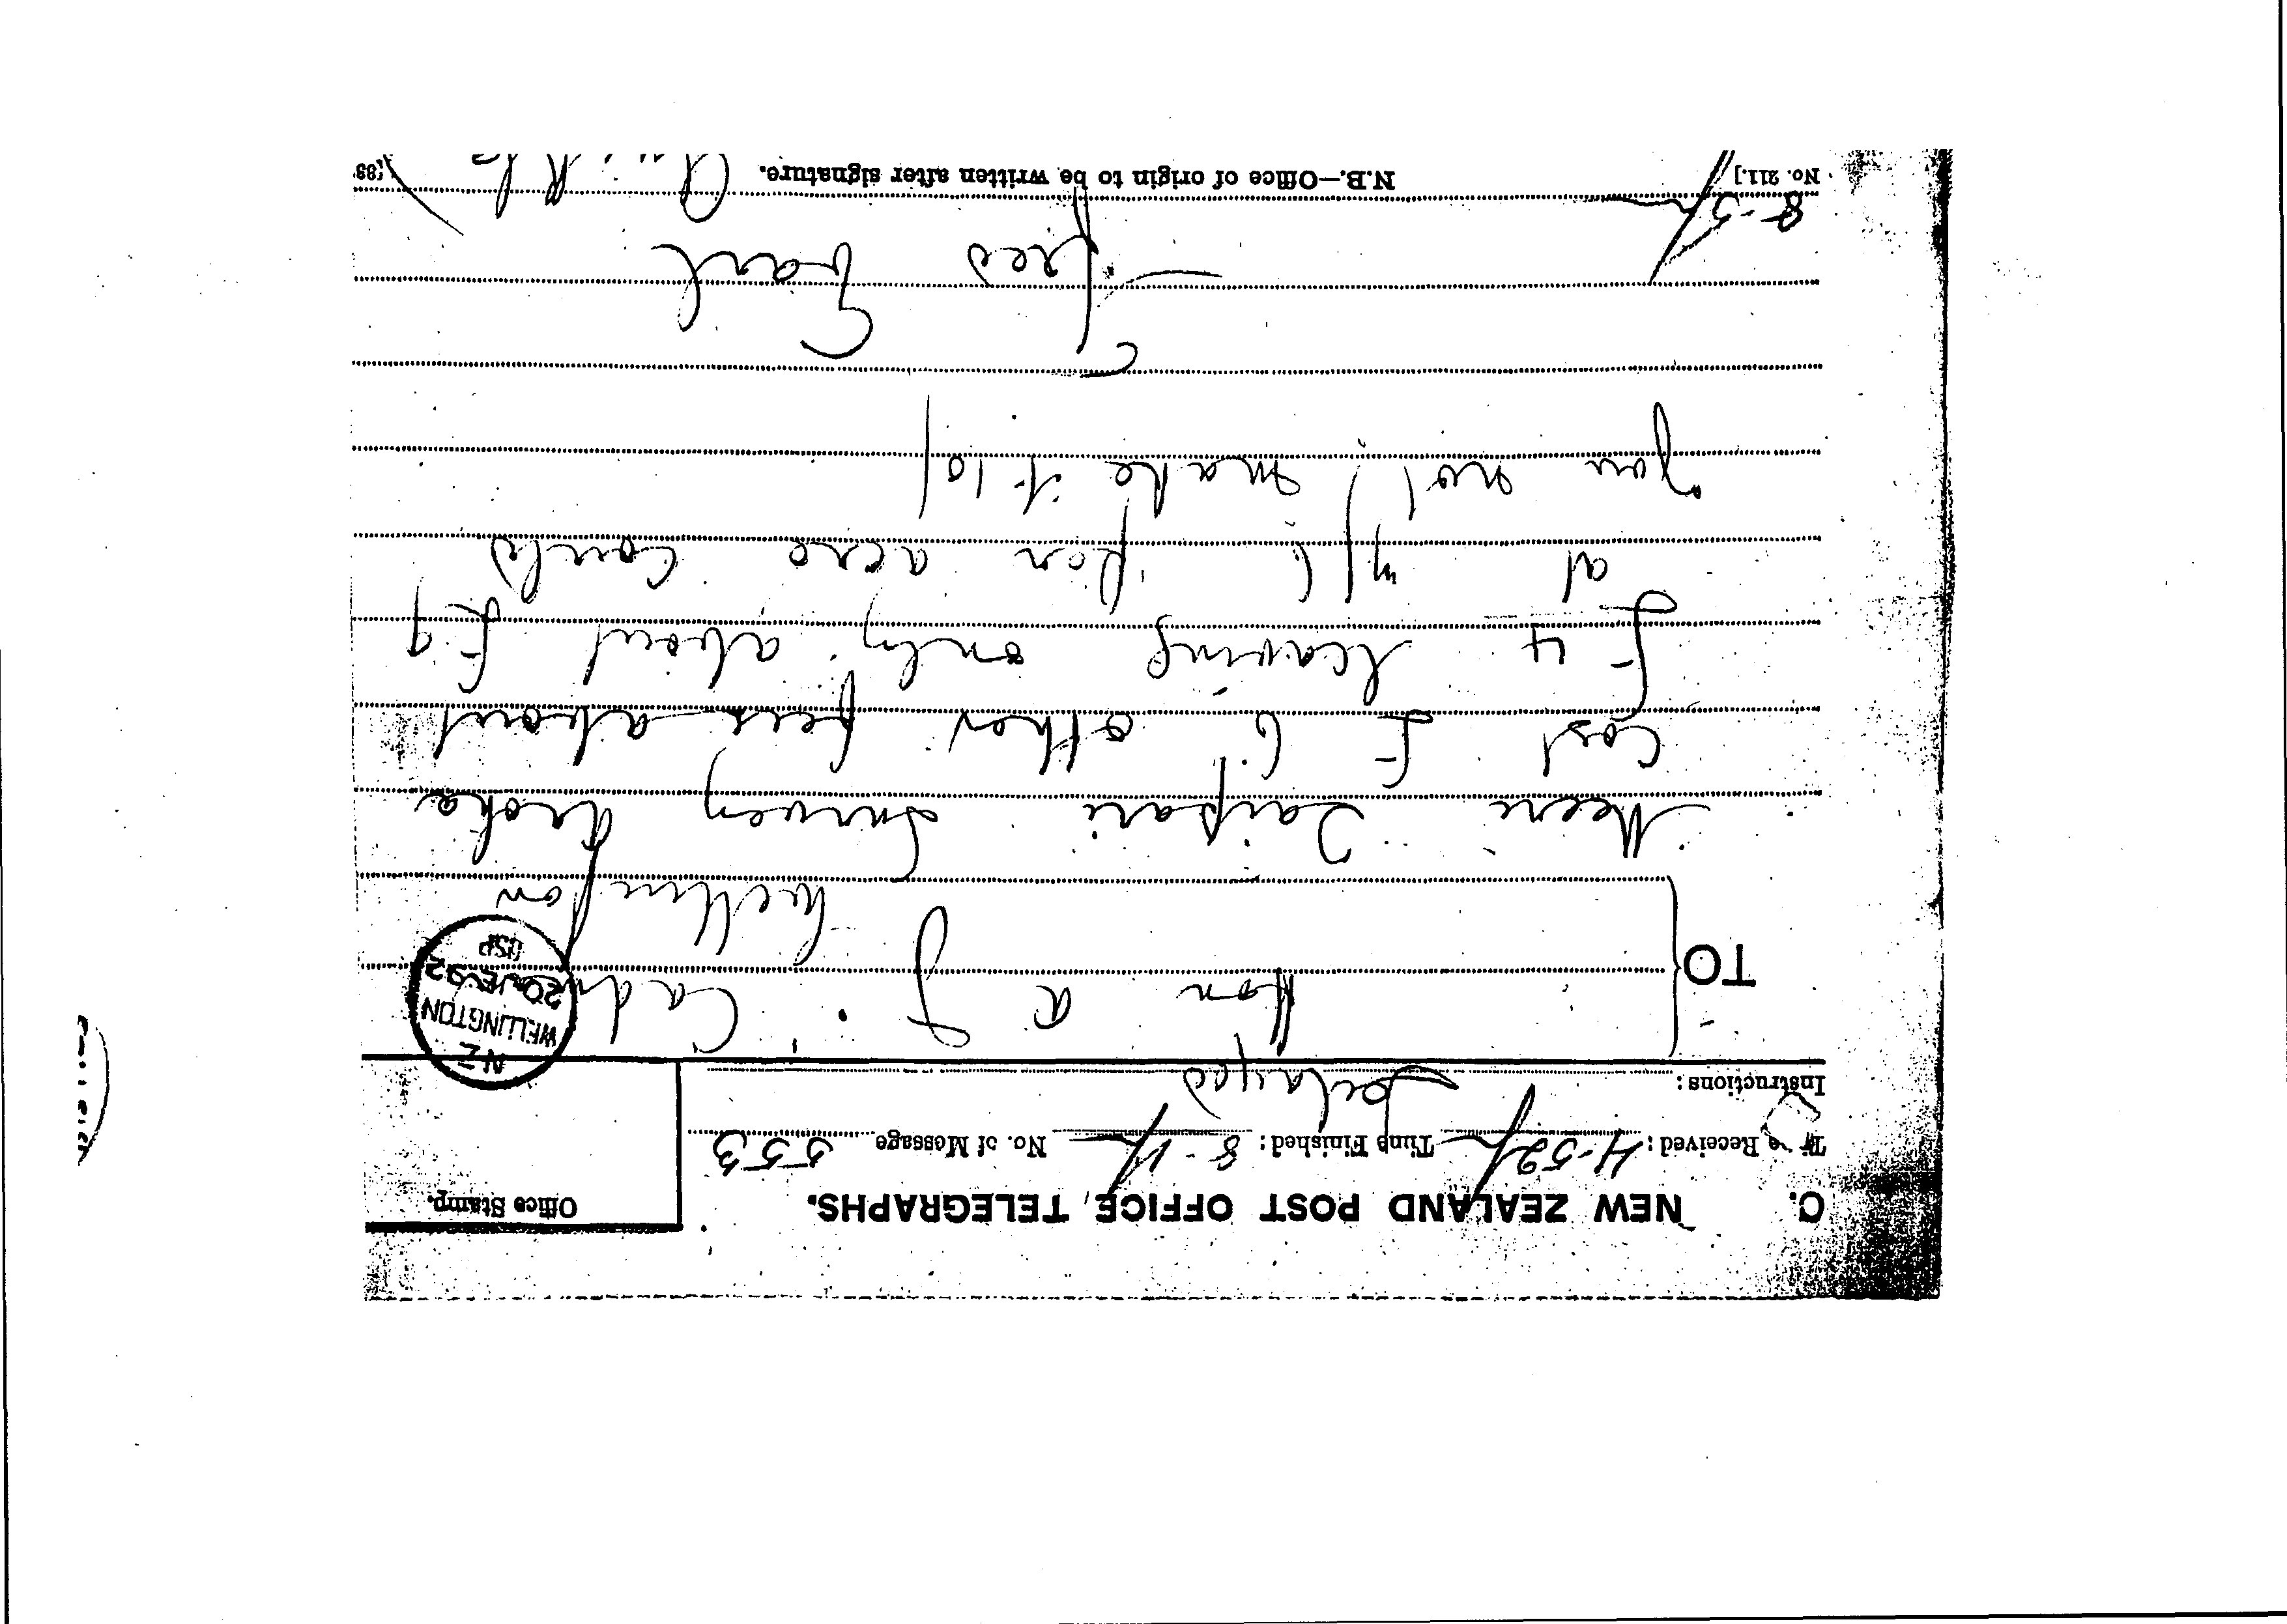 C. NEW ZEALAND POST OFFICE TELEGRAPHS.
Office Stamp.
Received: 4-52p Time Finished: 8-4p No. of Message 553
Instructions: Delayed
NZ
WELLINGTON
20 92
TO
Hon A J Cad
Wellington
Meeri Taipari survey Aroha
Cost £6 other fees about
£4 leaving only about £9
at 7/6 per acre could
you not make it 10/
Gilbert
8-5p
No. 211.]
N.B.—Office of origin to be written after signature.